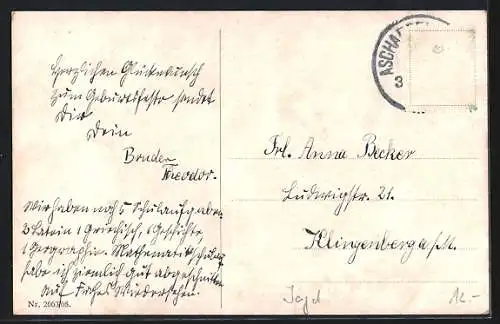 Herzlichen Glückwunsch
zum Geburtsfeste sendet
Dir
Dein
Bruder
Theodor.
Wir haben noch 5 Schulaufgaben
2 Latein 1 Griechisch, 1 Geschichte
1 Geographie. Mathematikschulauf
habe ich ziemlich gut abgeschnitten
Auf frohes Wiedersehen.
Nr.
ASCHAFF
3
Frl. Anna Becker
Ludwigstr. 21.
Klingenberg a/M.
Jagd
12-